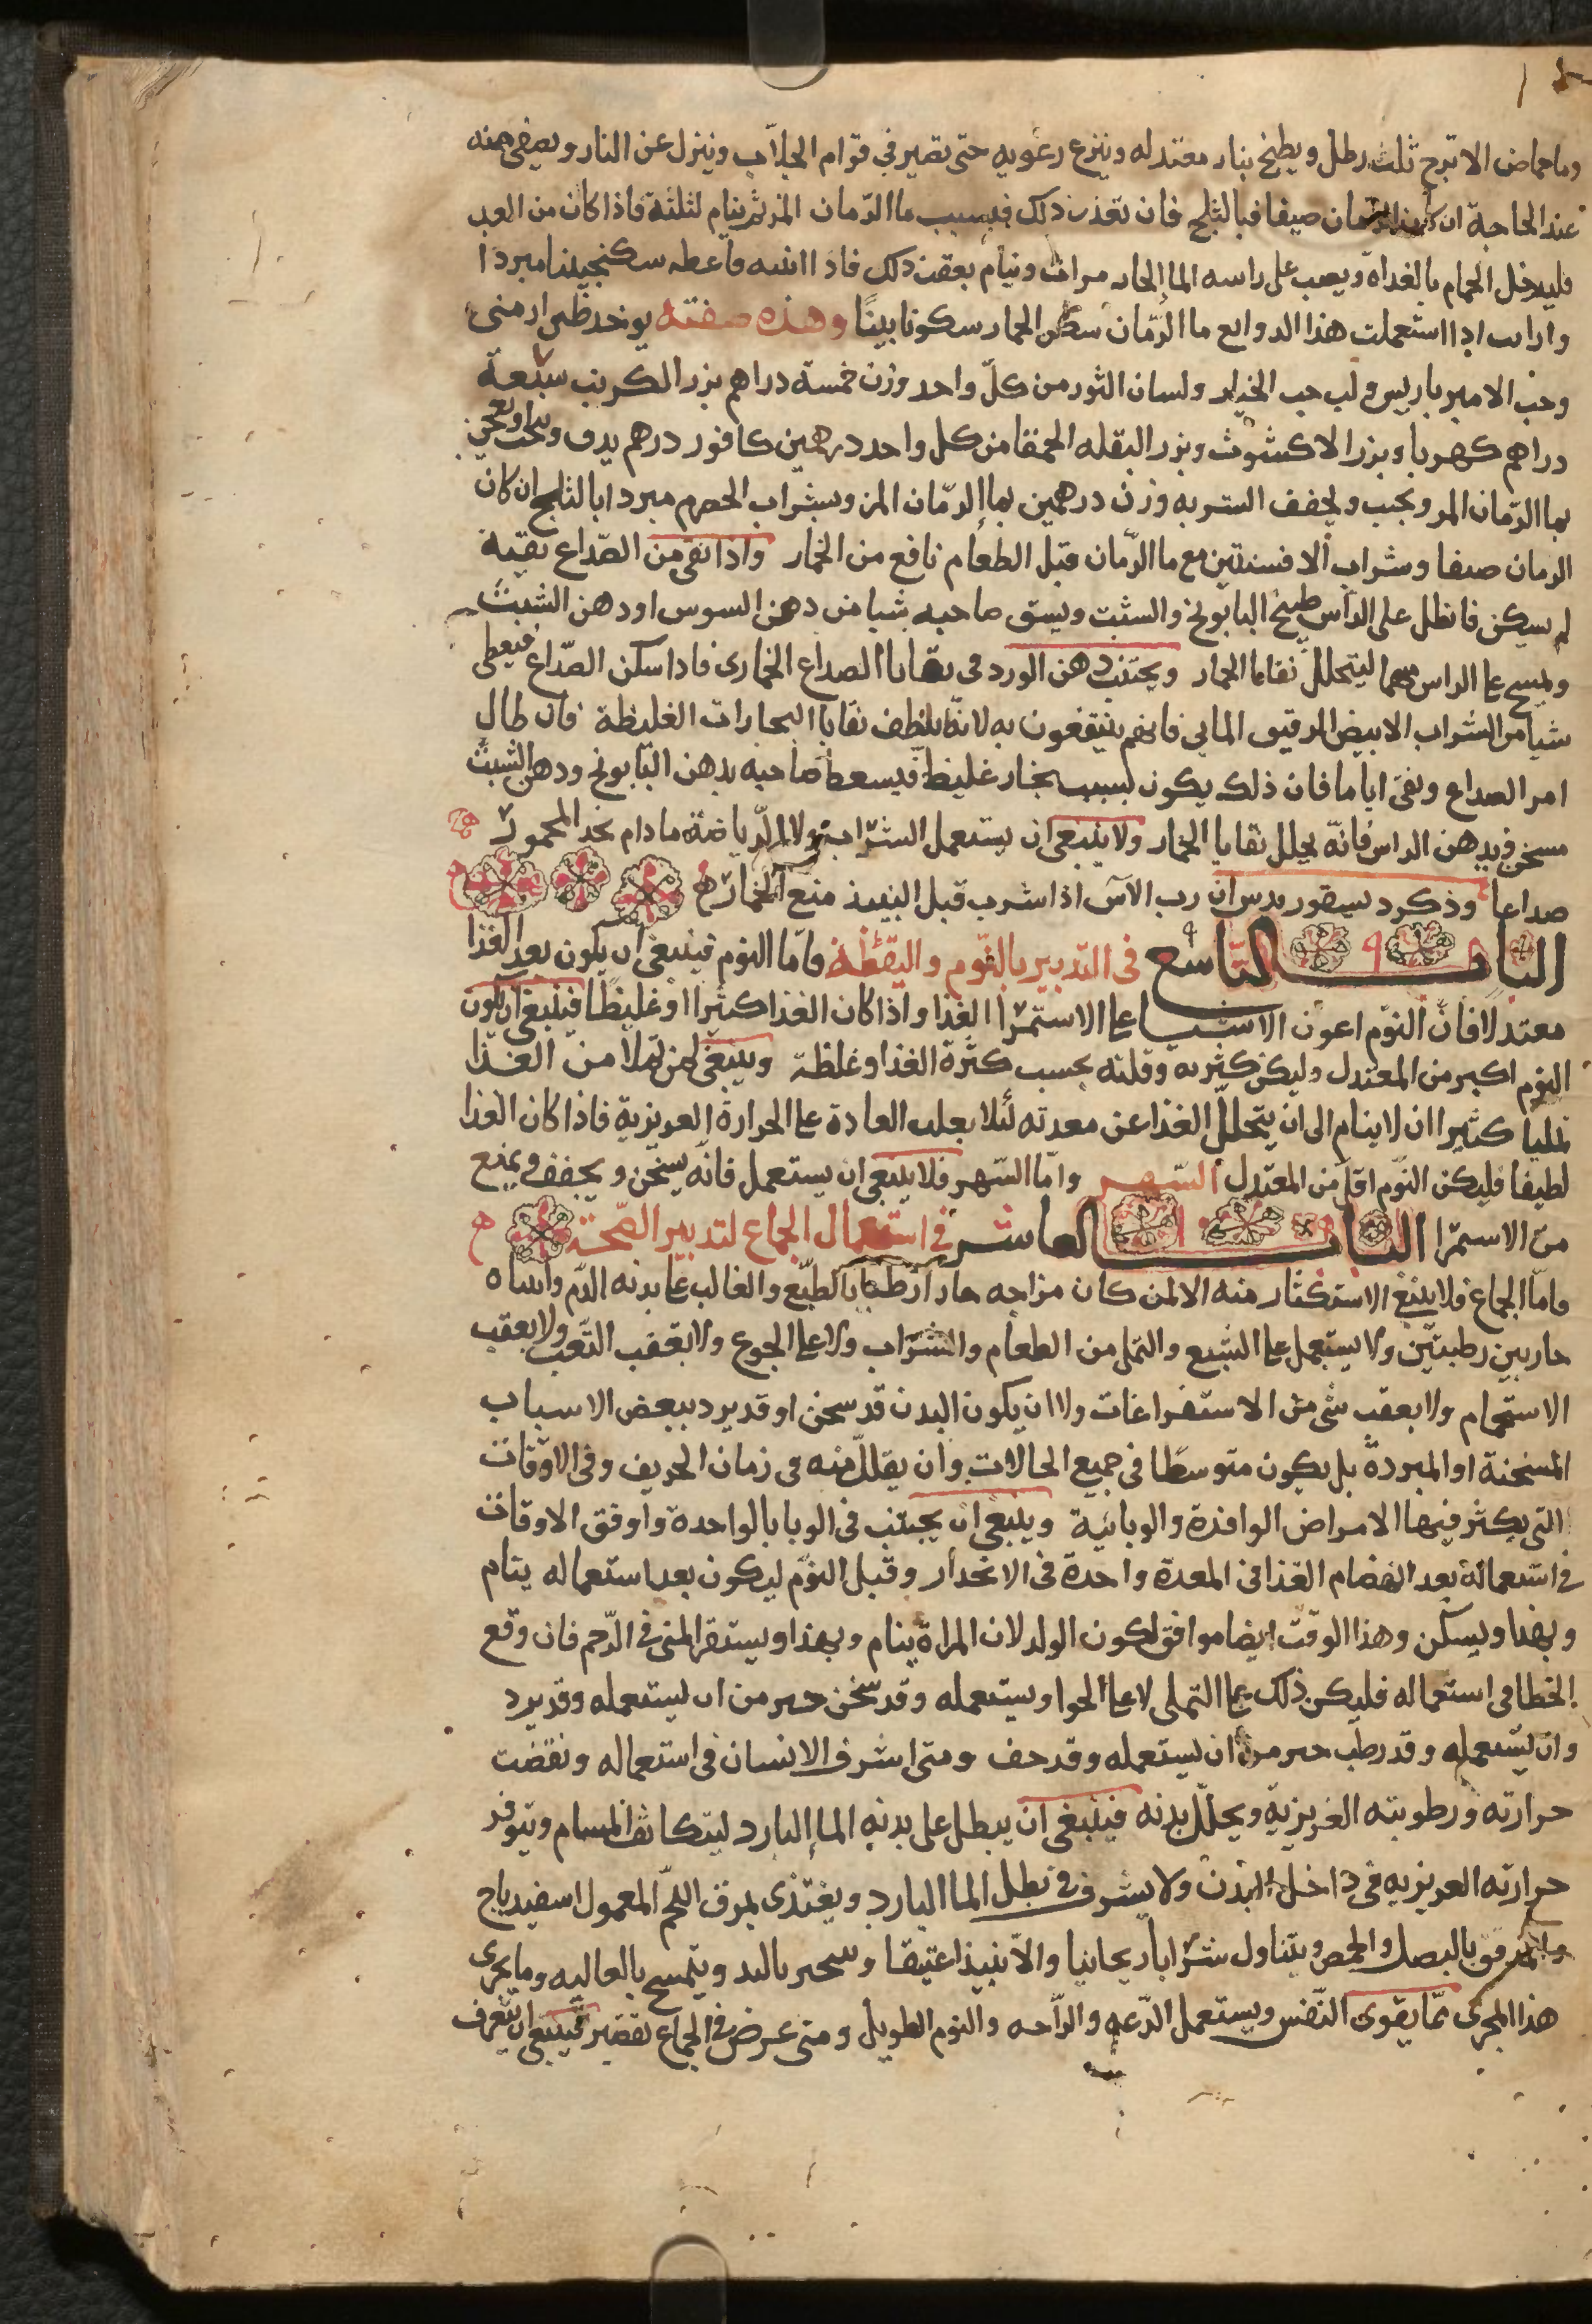 وماحماض الاترج ثلث رطل ويطبخ بنار معتدله وينزع رغويه حتى يصير في قوام الجلاّب وينزل عن النار ويصفى منه
عند الحاجة ان كان الزمان صيفا فبالثلج فان تعذر ذلك فبسبب ما الرّمان المز ثم ينام لثلثة فاذا كان من الغد
فليدخل الحمام بالغداة ويصب على راسه الما الحار مرات وينام بعقب ذلك فاذا انتبه فاعطه سكنجبينا مبردا
وان استعملت هذا الدوا مع ما الرّمان سكن الخمار سكونا بينًا وهذه صفته يوخذ طين ارمنى
وحب الامير باريس ولب حب الخيار ولسان الثور من كلّ واحد وزن خمسة دراهم بزر الكرنب سبعة
دراهم كهربا وبزر الاكشوث وبزر البقله الحمقا من كل واحد درهمين كافور درهم يدق ويعجن
بما الرّمان المز ويحبب ويجفف الشربه وزن درهمين بما الرمّان المز وبشراب الحصرم مبردا بالثلج ان كان
الزمان صيفا وشراب الافسنتين مع ما الرّمان قبل الطعام نافع من الخمار واذا بقى من الصّداع بقية
لم يسكن فانطل على الرّاس طبيخ البابونج والشبت ويسق صاحبه شيا من دهن السوس او دهن الشبث
ويمسح على الراس بهما ليتحلل بقايا الخمار ويجتنب دهن الورد فى بقايا الصداع الخمارى فاذا سكن الصّداع فيعطى
شيا من الشراب الابيض الرقيق المايى فانهم ينتفعون به لانّه يلطف بقايا البخارات الغليظة فان طال
امر الصداع وبقى اياما فان ذلك يكون بسبب بخار غليظ فيسعط صاحبه بدهن البابونج ودهن الشبث
مسخن ويدهن الراس فانّه يحلل بقايا الخمار ولا ينبغى ان يستعمل الشراب ولا الرّياضة ما دام يجد المخمور
صداعا وذكر ديسقوريدس ان رب الآس اذا شرب قبل النبيذ منع الخمار
الباب التاسع فى التدبير بالنّوم واليقظة فامّا النوم فينبغى ان يكون بعد الغذا
معتدلا فان النوم اعون الاشيا على الاستمرا الغذا واذا كان الغذا كثيرا او غليظًا فينبغى ان يكون
النوم اكبر من المعتدل وليكن كثيره وقلته بحسب كثرة الغذا وغلظه وينبغى لمن تملا من الغذا
تمليا كثيرا ان لا ينام الى ان يتحلل الغذا عن معدته لئلا العادة على الحرارة الغريزية فاذا كان الغذا
لطيفا فليكن النّوم اقل من المعتدل السّهر وامّا السّهر فلا ينبغى ان يستعمل فانّه يسخّن ويجفف ويمنع
من الاستمرا الباب العاشر فى استعمال الجماع لتدبير الصّحة
فامّا الجماع فلا ينبغى الاستكثار منه الا لمن كان مزاجه حارا رطبا بالطبّع والغالب على بدنه الدّم وانثياه
حاربين رطبتين ولا يستعمل على الشبع والتملى من الطعام والشراب ولا على الجوع ولا بعقب التّعب ولا بعقب
الاستحمام ولا بعقب شى من الاستفراغات ولا ان يكون البدن قد سخن او قد برد ببعض الاسباب
المسخنة او المبردة بل يكون متوسطا فى جميع الحالات وان يقلل منه فى زمان الخريف وفى الاوقات
التى يكثر فيها الامراض الوافدة والوبائية وينبغى ان يجتنب فى الوبا بالواحدة واوفق الاوقات
فى استعماله بعد انهضام الغذا فى المعدة واحدة فى الانحدار وقبل النوم ليكون بعد استعماله ينام
ويهدا ويسكن وهذا الوقت ايضا موافق لكون الولد لان المراة ينام ويهدا ويستقر المنى فى الرّحم فان وقع
الخطا فى استعماله فليكن ذلك على التملى لا على الخوا ويستعمله وقد سخن خير من ان يستعمله وقد برد
وان يستعمله وقد رطب خير من ان يستعمله وقد جف ومتى اسرف الانسان فى استعماله ونقصت
حرارته ورطوبته الغريزية ويحلّل بدنه فينبغى ان يبطل على بدنه الما البارد ليتكاثف المسام ويتوفر
حرارته الغريزيه فى داخل البدن ولا يسرف فى نطل الما البارد ويغتذى بمرق اللّحم المعمول اسفيدباج
بالبصل والحمص ويتناول شرابا ريحانيا والا نبيذا عتيقا بالند ويتمسح بالغاليه وما يجرى
هذا المجرى ممّا يقوى النّفس ويستعمل الدّعه والرّاحه والنوم الطويل ومتى عرض فى الجماع تقصير فينبغى ان يتعرف